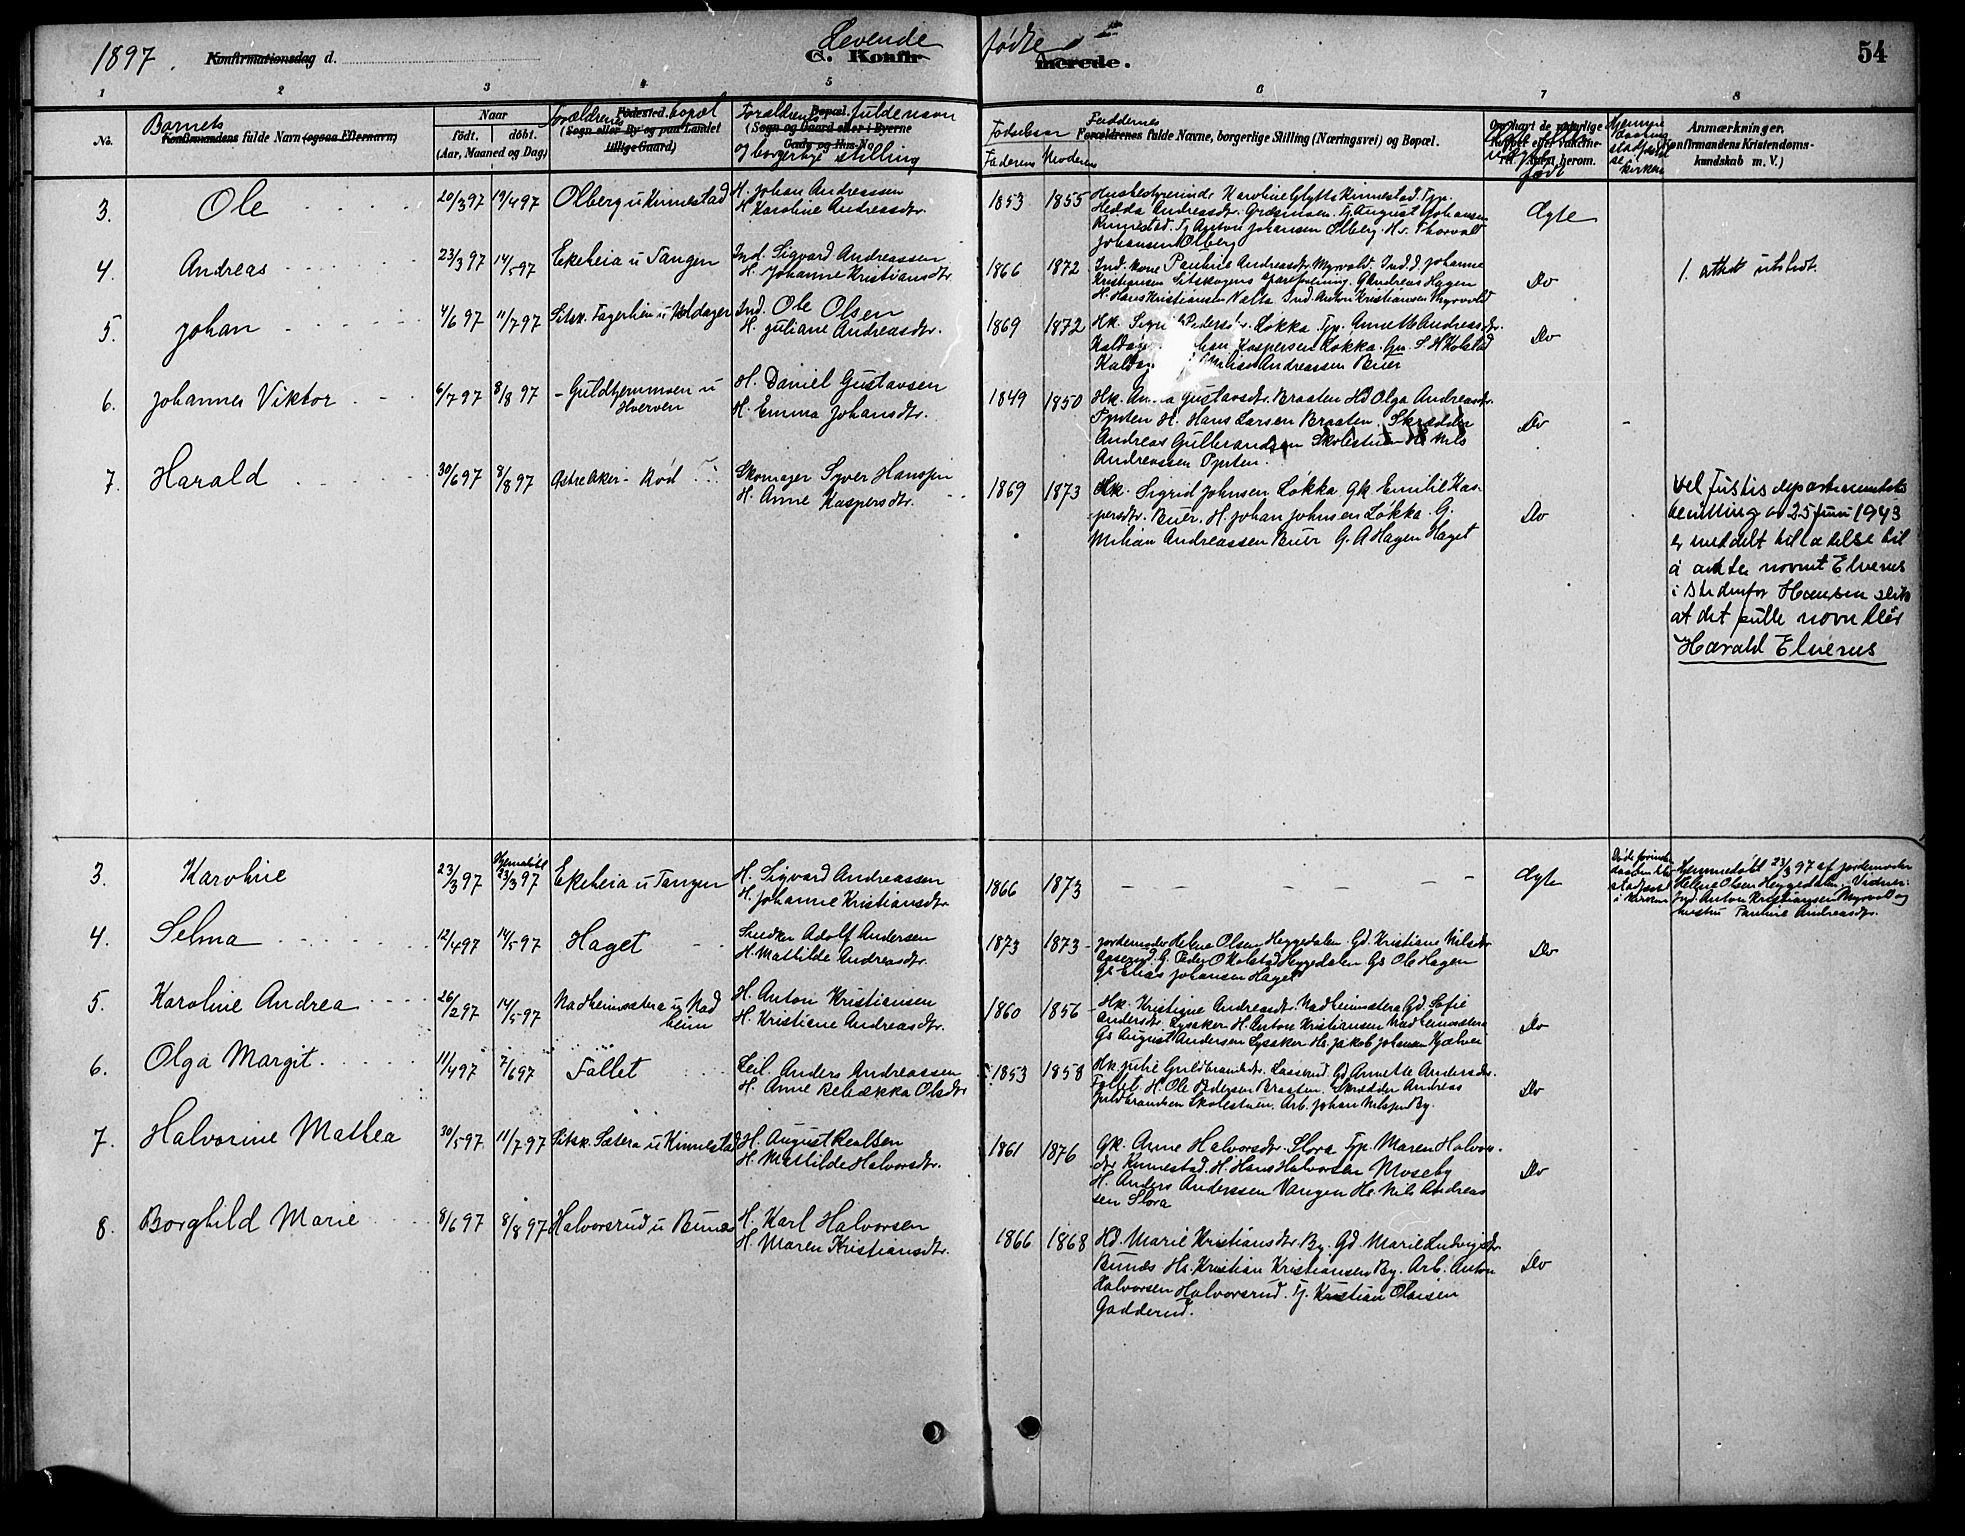 1897. Konfirmationsdag d.
Levende fødte
C. Konfirmerede.
54
1 2 3 4 5 6 7 8
No.
Barnets
Konfirmandens fulde Navn (ogsaa Efternavn)
Naar
født. døbt.
(Aar, Maaned og Dag)
Forældrenes bopæl
Fødested.
(Sogn eller By og paa Landet
tillige Gaard)
Forældrenes fulde navn
Bopæl.
(Sogn og Gaard eller i Byerne
Gade og Hus-No.)
og borgerlige stilling
Fødselsaar
Faderens Moderens
Faddernes
Forældrenes fulde Navne, borgerlige Stilling (Næringsvei) og Bopæl.
født
Anmærkninger.
(Konfirmandens Kristendoms-
kundskab m. V.)
3. Ole 20/3 97 19/4 97 Olberg u Kinnestad H. Johan Andreassen
H Karoline Andreasdtr.
1853 1855 Husbestyrerinde Karoline Glytts Kinnestad. Typ.
Hedda Andreasdtr. Græsmoen. Tj August Johansen
Kinnestad. Tj Anton Johansen Olberg. Hs. Thorvald
Johansen Olberg
Ægte
4. Andreas 23/3 97 14/5 97 Ekeheia u Tangen Ind. Sigvard Andreassen
H. Johanne Kristiansdtr.
1866 1872 Ind. kone Pauline Andreasdtr Myrvold. Ind. d. Johanne
Kristiansen Sitskogens Spareforening. G Andreas Hagen
H. Hans Kristiansen Nalta Ind. Anton Kristiansen Myrvold
Do
1. attest utstedt.
5. Johan 4/6 97 11/7 97 Sitsk. Fagerlien u Koldager Ind. Ole Olsen
H. Juliane Andreasdtr.
1869 1872 Hk. Pedersdtr. Løkka. Typ. Annette Andreasdtr.
Kaspersen Løkka. Gm. S H Kolstad
Andreassen Buer
Do
6. Johannes Viktor 6/7 97 8/8 97 - Guldhjemmoen u
Hverven
H. Daniel Gustavsen
H. Emma Johansdtr.
1849 1850 Hk. Gustavsdtr. Braaten Hd Olga Andreasdtr.
H. Hans Larsen Braaten. Skrædder
Andreas Gulbrandsen Skolestuen Hs Nils
Andreassen
Do
7. Harald 30/6 97 8/8 97 Østre Aker - Rød Skomager Syver Hanssen
H. Anne Kaspersdtr.
1869 1873 Hk. Sigrid Johnsen Løkka. Gk Emilie Kas-
persdtr. Buer. H. Johan Johnsen Løkka. G.
Milian Andreassen Buer G. A Hagen Haget
Do
Ved Justisdepartementets
bevilling av 25 juni 1943
er meddelt tillatelse til
å anta navnet Elverus
i stedenfor Hansen slik
at det fulle navn blir
Harald Elverus
3. Karoline 23/3 97 Hjemmedøbt
23/3 97 Ekeheia u Tangen H. Sigvard Andreassen
H. Johanne Kristiansdtr
1866 1873 - - - - - -
Ægte
Døde forinden
daaben blev
stadfæstet
i kirken
Hjemmedøbt 23/3 97 af jordemoder
Helene Olsen Heggedalen. Vidner:
Ind. Anton Kristiansen Myrvold og
hustru Pauline Andreasdtr.
4. Selma 12/4 97 14/5 97 Haget Snedker Adolf Andersen
H. Mathilde Andreasdtr.
1873 1873 - Jordemoder Helene Olsen Heggedalen. Gd. Kristiane Nilsdtr
Aaserud. G. Peder O Kolstad Heggedalen Gs Ole Hagen
Gs Elias Johansen Haget
Do
5. Karoline Andrea 26/2 97 14/5 97 Nadheimsætera u Nad
heim
H. Anton Kristiansen
H. Kristiane Andreasdtr.
1860 1856 - Hk. Kristiane Andreasdtr. Nadheimsætera Gd. Sofie
Andersdtr. Lysaker H. Anton Kristiansen Nadheimsætera
Gs August Andersen Lysaker Hs. Jakob Johansen
Do
6. Olga Margit. 11/4 97 7/6 97 Fallet Leil. Anders Andreassen
H. Anne Rebækka Olsdtr
1853 1858 Hk. Julie Guldbrandsdtr. Gd Annette Andersdtr.
Fallet. H. Ole Pedersen Braaten. Skrædder Andreas
Guldbrandsen Skolestuen. Arb. Johan Nilssen By.
Do
7. Halvorine Mathea 30/5 97 11/7 97 Sitsk. Sætera u Kinnestad H. August Realtsen
H. Mathilde Halvorsdtr.
1861 1876 Gk. Anne Halvorsdtr. Slora Typ. Maren Halvor-
dtr Kinnestad. H. Hans Halvorsen Moseby
H. Anders Anderssen Vangen Hs. Nils Andreas
sen Slora
Do
8. Borghild Marie 8/6 97 8/8 97 Halvorsrud u Bunes H. Karl Halvorsen
H. Maren Kristiansdtr.
1866 1868 Hd. Marie Kristiansdtr By. Gd. Marie Ludvigsdtr
Bunæs Hs. Kristian Kristiansen By. Arb. Anton
Halvorsen Halvorsrud. Tj. Kristian Olaisen
Gadderud.
Do